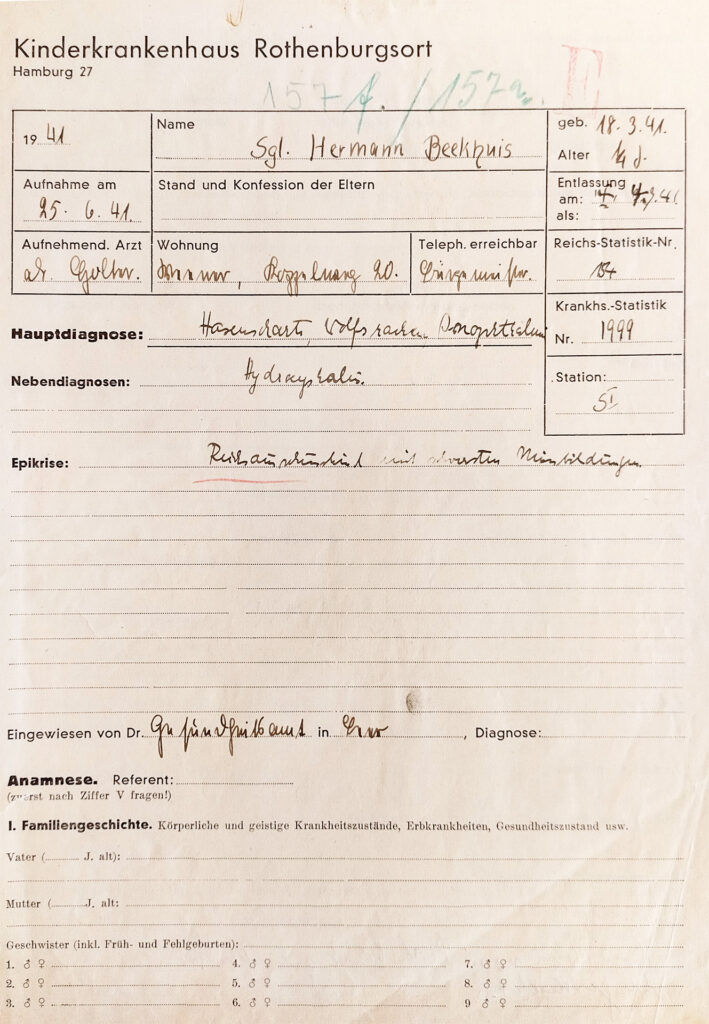 Kinderkrankenhaus Rothenburgsort
Hamburg 27
157 f. / 157a. E
19 41
Name
Sgl. Hermann Beekhuis
geb. 18. 3. 41.
Alter ¼ J.
Aufnahme am
25. 6. 41.
Stand und Konfession der Eltern
Entlassung
am:
als:
Aufnehmend. Arzt
Wohnung
Weener, 20.
Teleph. erreichbar
Bürgermeister.
Reichs-Statistik-Nr.
Krankhs.-Statistik
Nr. 1999
Station:
SI
Hauptdiagnose: Hasenscharte, Wolfsrachen
Nebendiagnosen: Hydrocephalus.
Epikrise: Reichsausschusskind mit schwersten Missbildungen.
Eingewiesen von Dr. Gesundheitsamt in Leer, Diagnose:
Anamnese. Referent:
(zuerst nach Ziffer V fragen!)
I. Familiengeschichte. Körperliche und geistige Krankheitszustände, Erbkrankheiten, Gesundheitszustand usw.
Vater ( J. alt):
Mutter ( J. alt:
Geschwister (inkl. Früh- und Fehlgeburten):
1. ♂ ♀ 4. ♂ ♀ 7. ♂ ♀
2. ♂ ♀ 5. ♂ ♀ 8. ♂ ♀
3. ♂ ♀ 6. ♂ ♀ 9 ♂ ♀